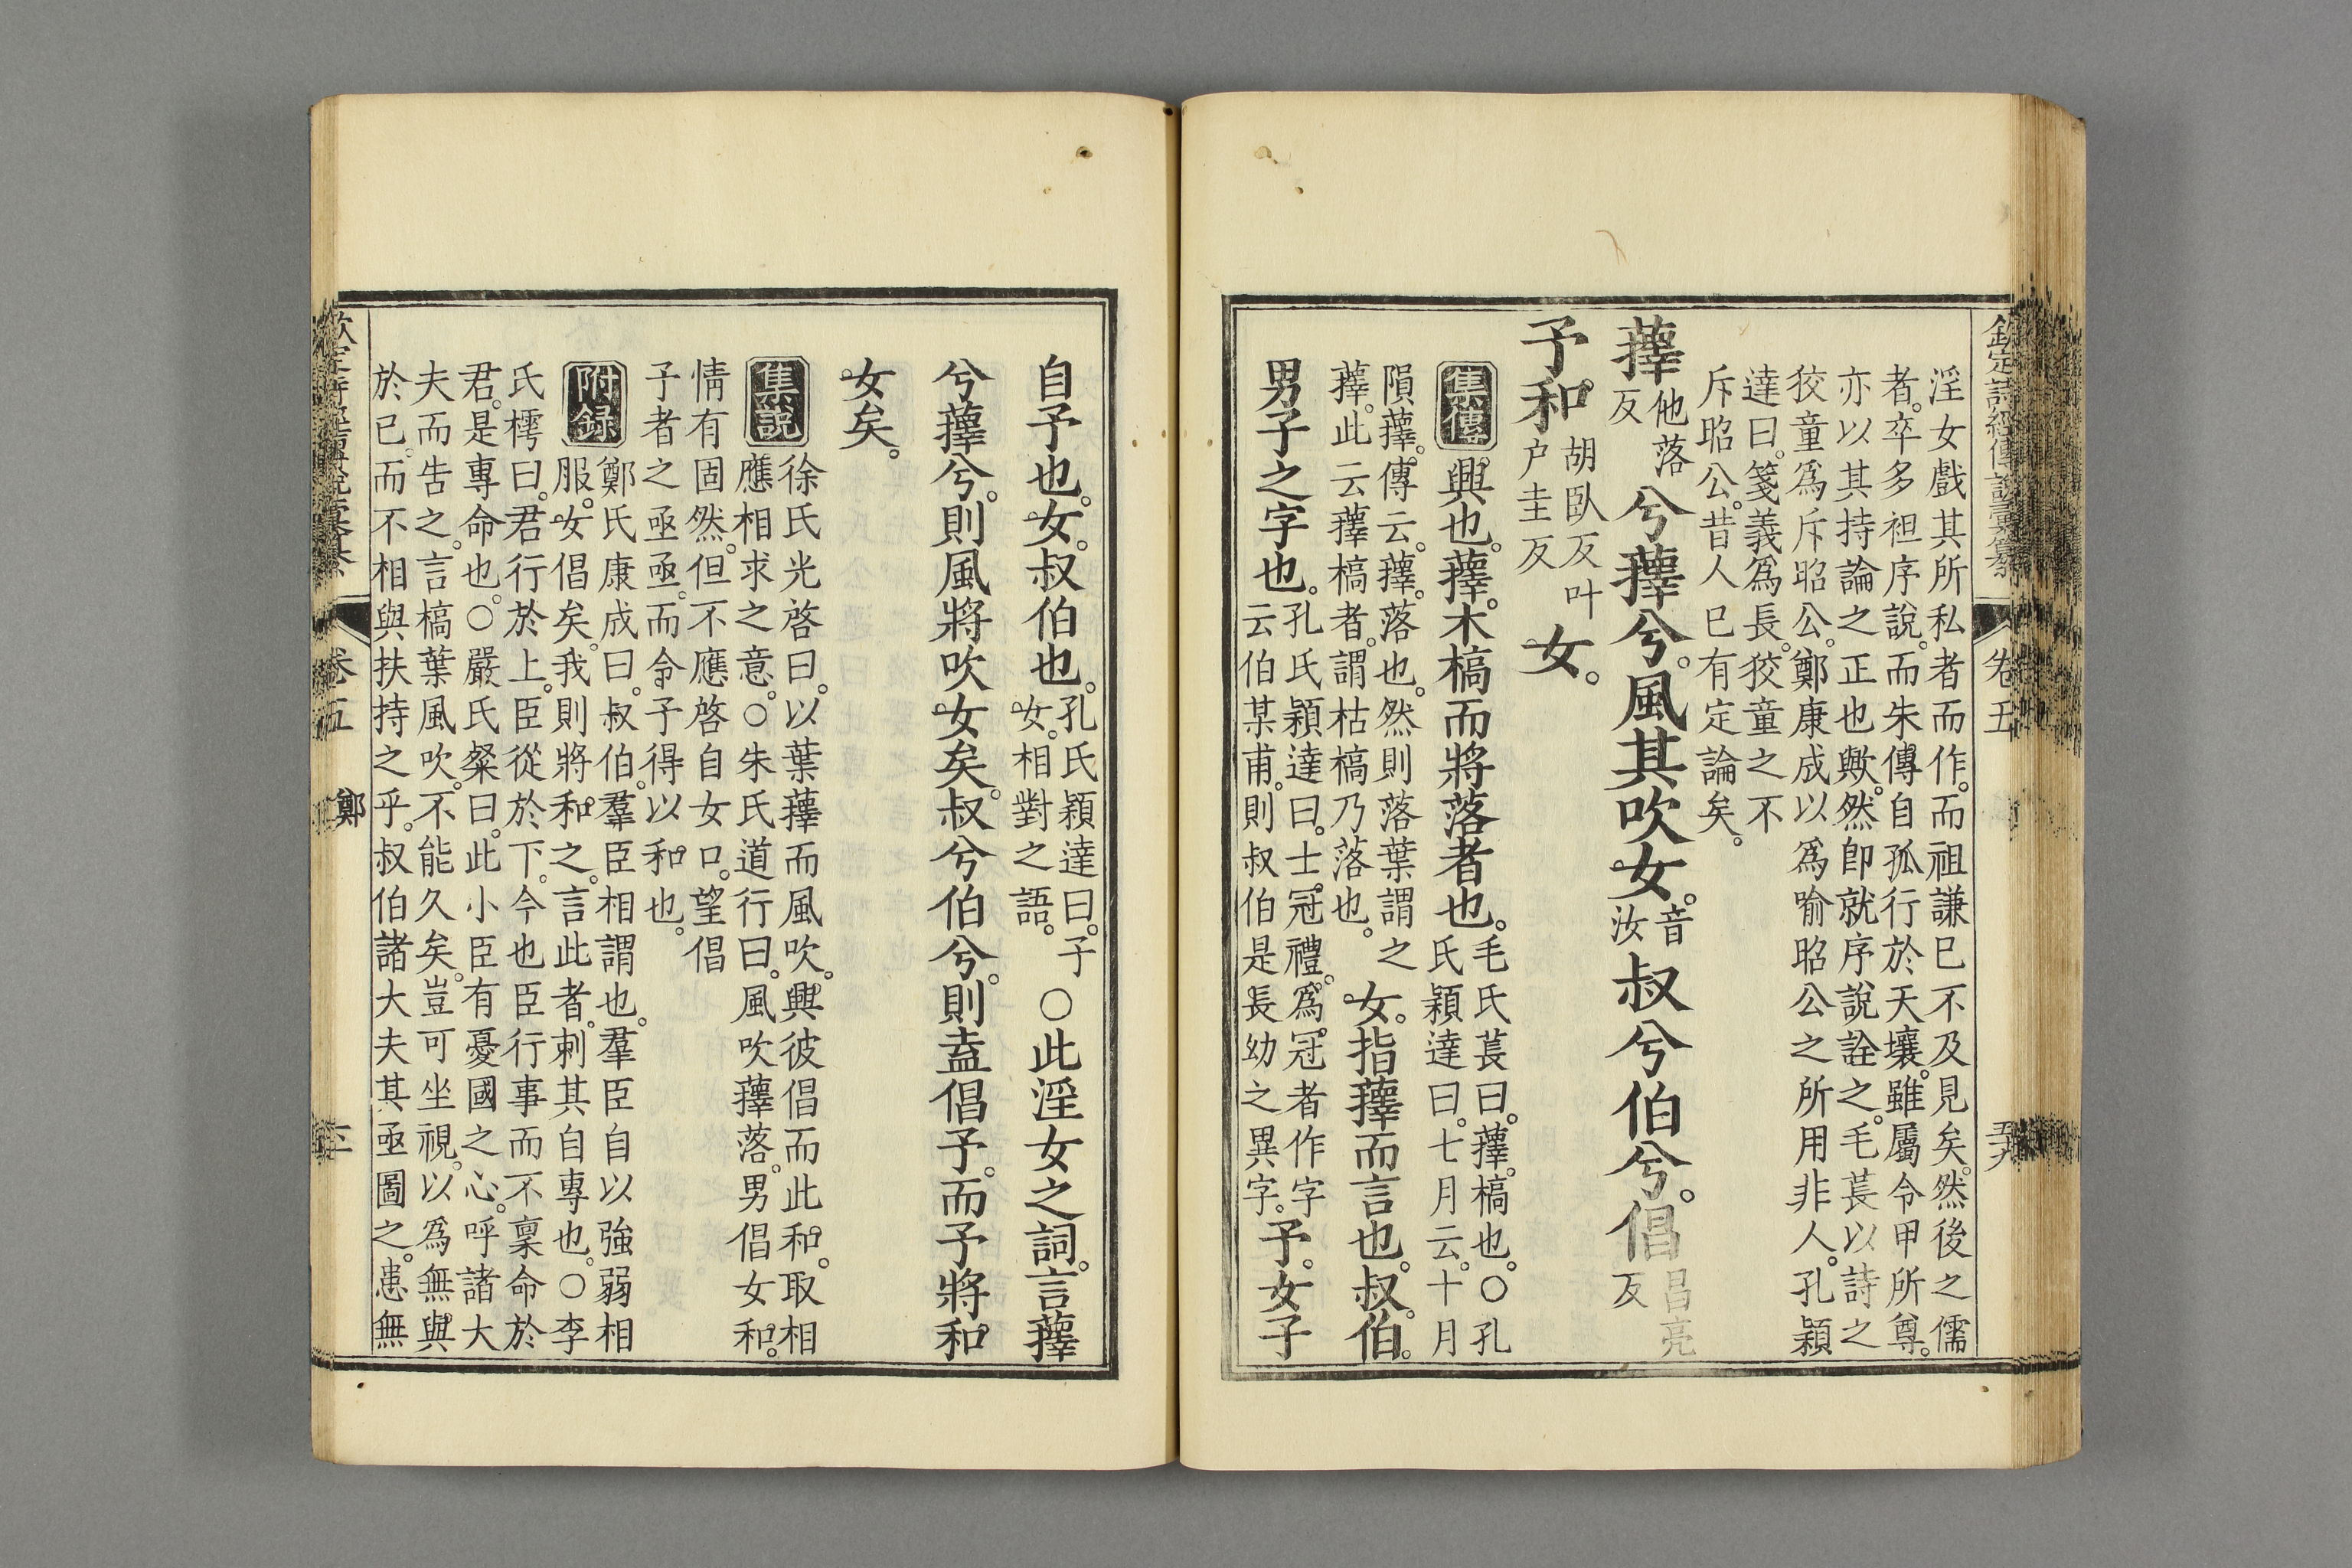 欽定詩經傳說彙纂
卷五
淫女戲其所私者而作。而祖謙已不及見矣。然後之儒
者。卒多袒序說。而朱傳自孤行於天壤。雖屬令甲所尊。
亦以其持論之正也歟。然卽就序說詮之。毛萇以詩之
狡童爲斥昭公。鄭康成以爲喻昭公之所用非人。孔穎
達曰。箋義爲長。狡童之不
斥昭公。昔人已有定論矣。
蘀他落反兮蘀兮。風其吹女。音汝叔兮伯兮。倡昌亮反
予和胡臥反叶戶圭反女。
集傳
興也。蘀。木槁而將落者也。毛氏萇曰。蘀。槁也。○孔氏穎達曰。七月云。十月
隕蘀。傳云。蘀。落也。然則落葉謂之蘀。此云蘀槁者。謂枯槁乃落也。女。指蘀而言也。叔。伯。
男子之字也。孔氏穎達曰。士冠禮。爲冠者作字云伯某甫。則叔伯是長幼之異字。予。女子
自予也。女。叔伯也。孔氏穎達曰。子女。相對之語。○此淫女之詞。言蘀
兮蘀兮。則風將吹女矣。叔兮伯兮。則盍倡予。而予將和
女矣。
集說
徐氏光啓曰。以葉蘀而風吹。興彼倡而此和。取相
應相求之意。○朱氏道行曰。風吹蘀落。男倡女和。
情有固然。但不應啓自女口。望倡
予者之亟亟。而令予得以和也。
附錄
鄭氏康成曰。叔伯。羣臣相謂也。羣臣自以強弱相
服。女倡矣。我則將和之。言此者。刺其自專也。○李
氏樗曰。君行於上。臣從於下。今也臣行事而不稟命於
君。是專命也。○嚴氏粲曰。此小臣有憂國之心。呼諸大
夫而告之。言槁葉風吹。不能久矣。豈可坐視。以爲無與
於已。而不相與扶持之乎。叔伯諸大夫其亟圖之。患無
卷五
鄭